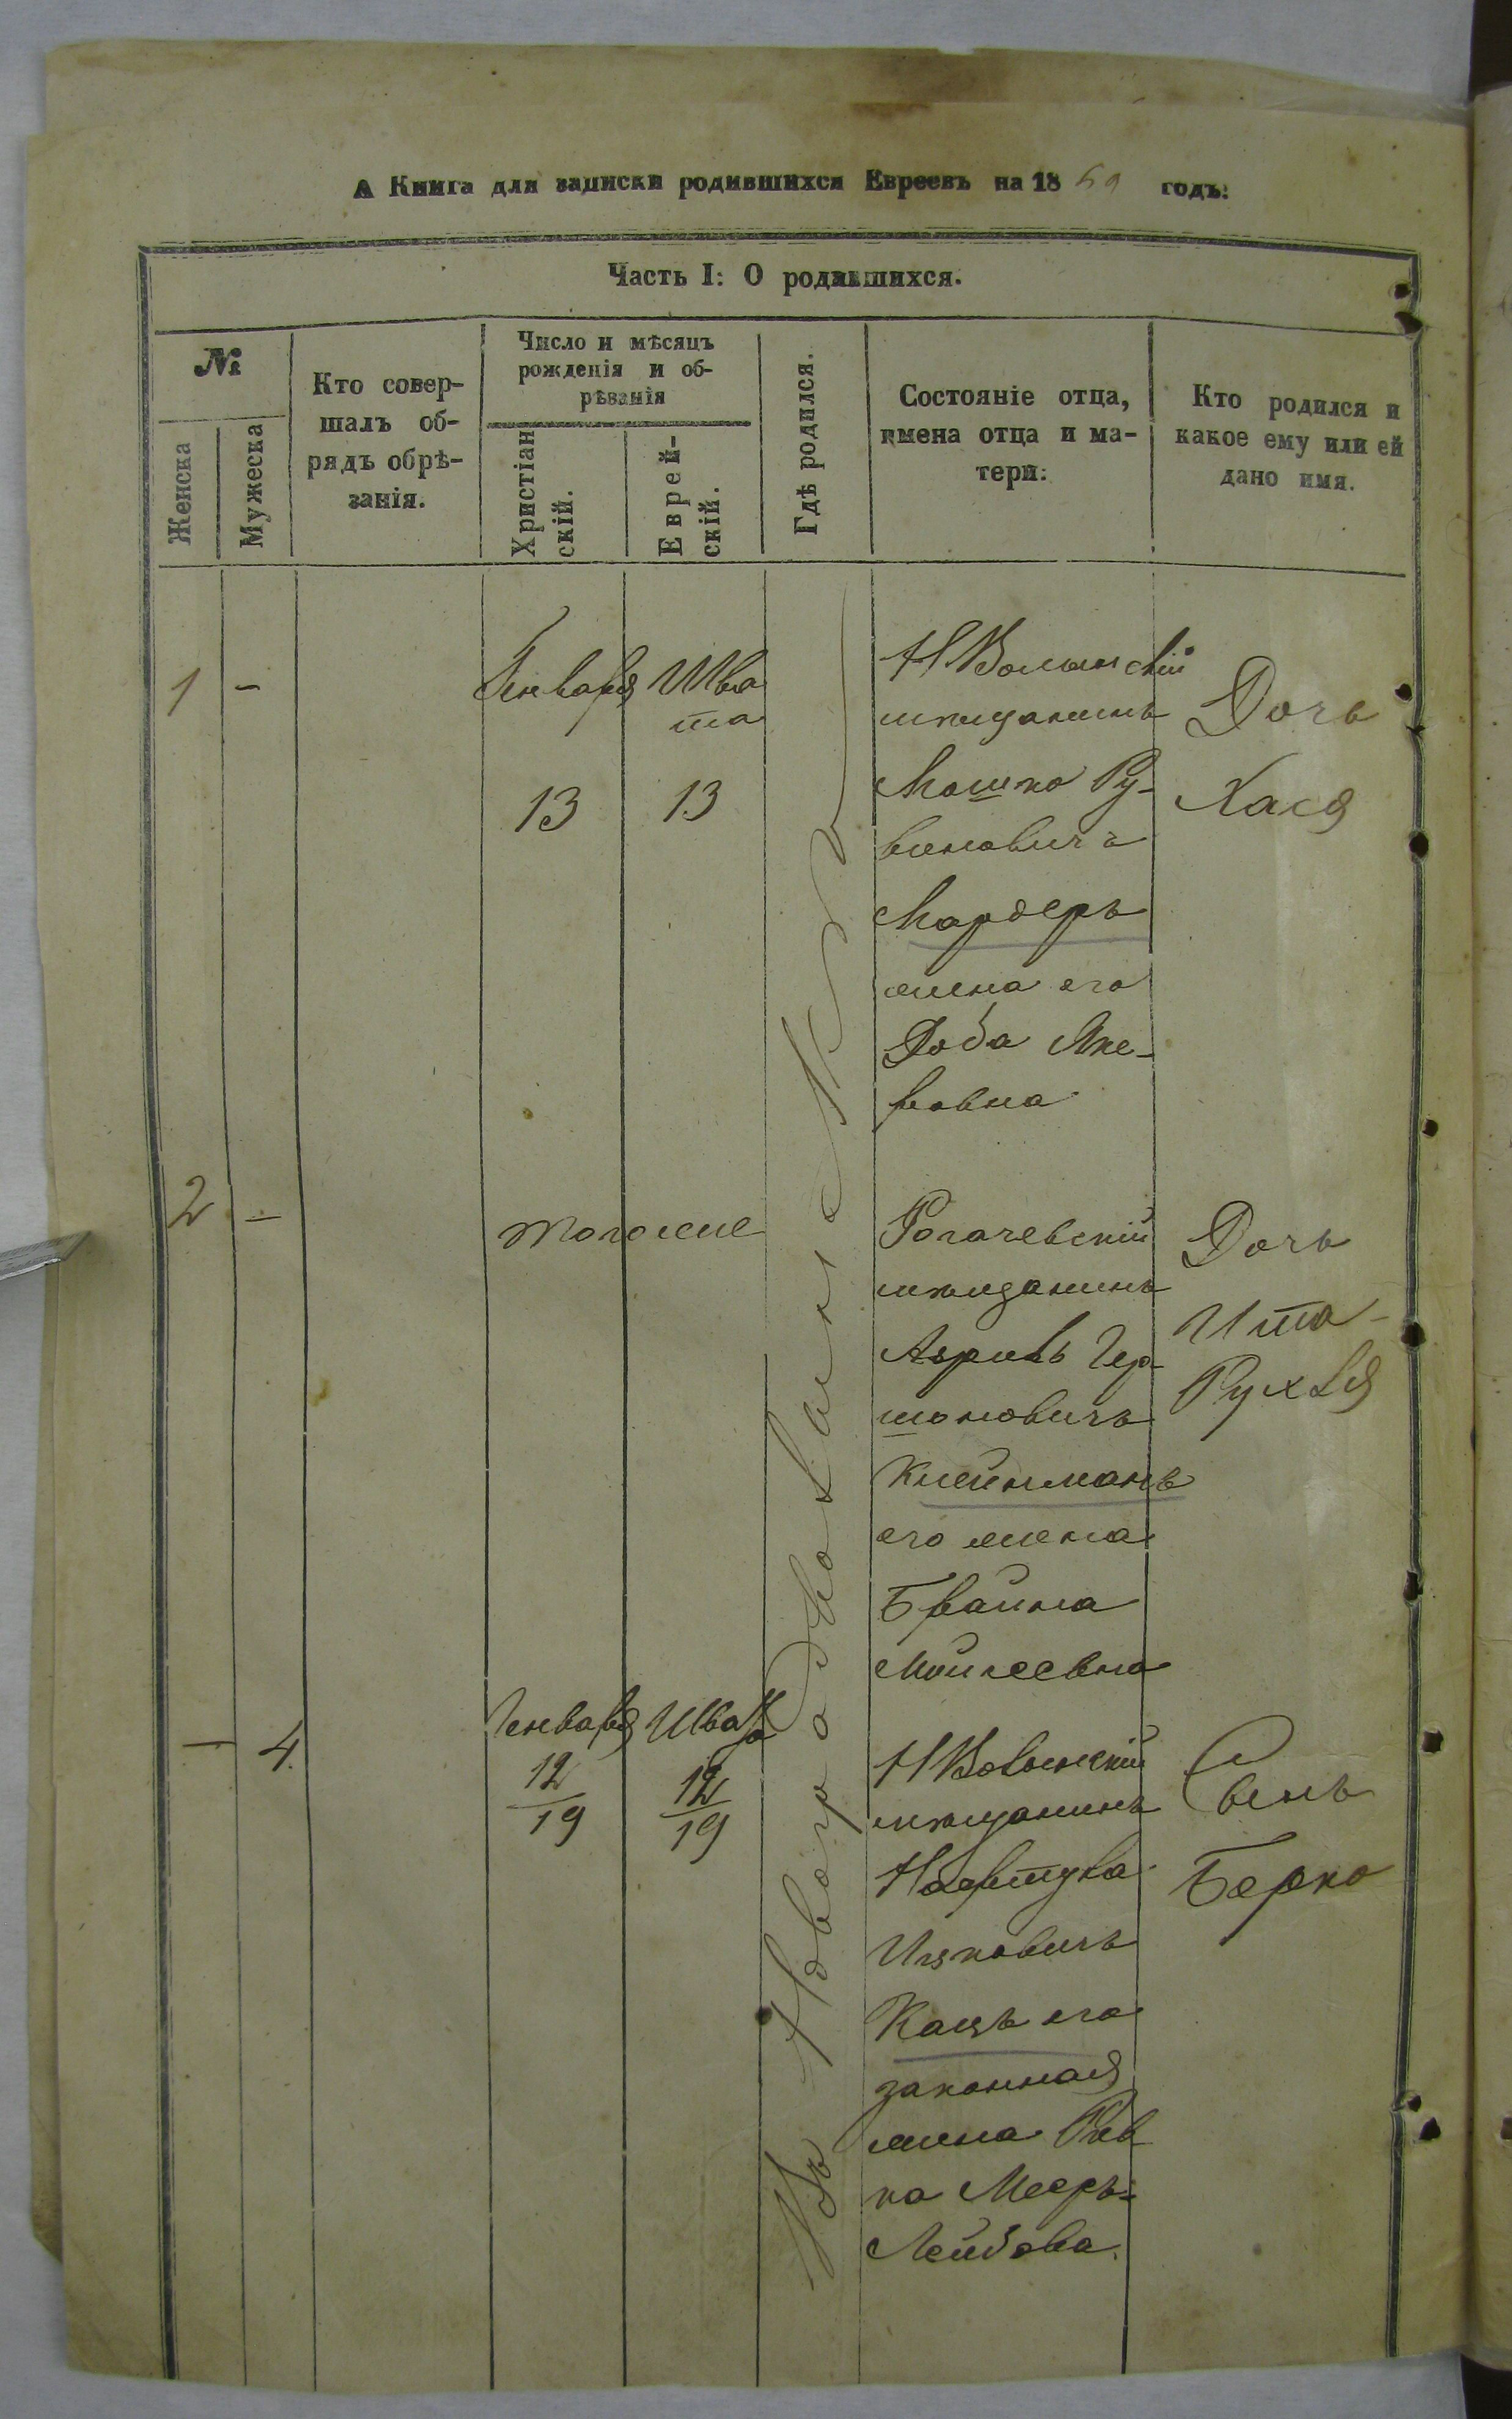 А Книга для записки родившихся Евреевъ на 1869 годъ:
Часть I: О родившихся.
№
Женска
Мужеска
Кто совер-
шалъ об-
рядъ обрѣ-
занія.
Число и мѣсяцъ
рожденія и об-
рѣзанія
Христіан
скій.
Еврей-
скій.
Гдѣ родился.
Состояніе отца,
имена отца и ма-
тери:
Кто родился и
какое ему или ей
дано имя.
1
-
Генваря
13
Шва
та
13
Въ Новоградволынскѣ
НВолынскій
мѣщанинъ
Мошко Ру-
виновичъ
Мардеръ
жена его
Доба Янке-
вовна
Дочь
Хася
2
-
тогоже
Рогачевскій
мѣщанинъ
Аврумъ Гер-
шоновичъ
Клейнманъ
его жена
Брайна
Мойсеевна
Дочь
Ита-
Рухля
-
4.
Генваря
12
19
Швата
12
19
НВолынскій
мѣщанинъ
Нафтула
Ицковичъ
Кацъ его
законная
жена Рив
ка Мееръ-
Лейбова.
Сынъ
Берко